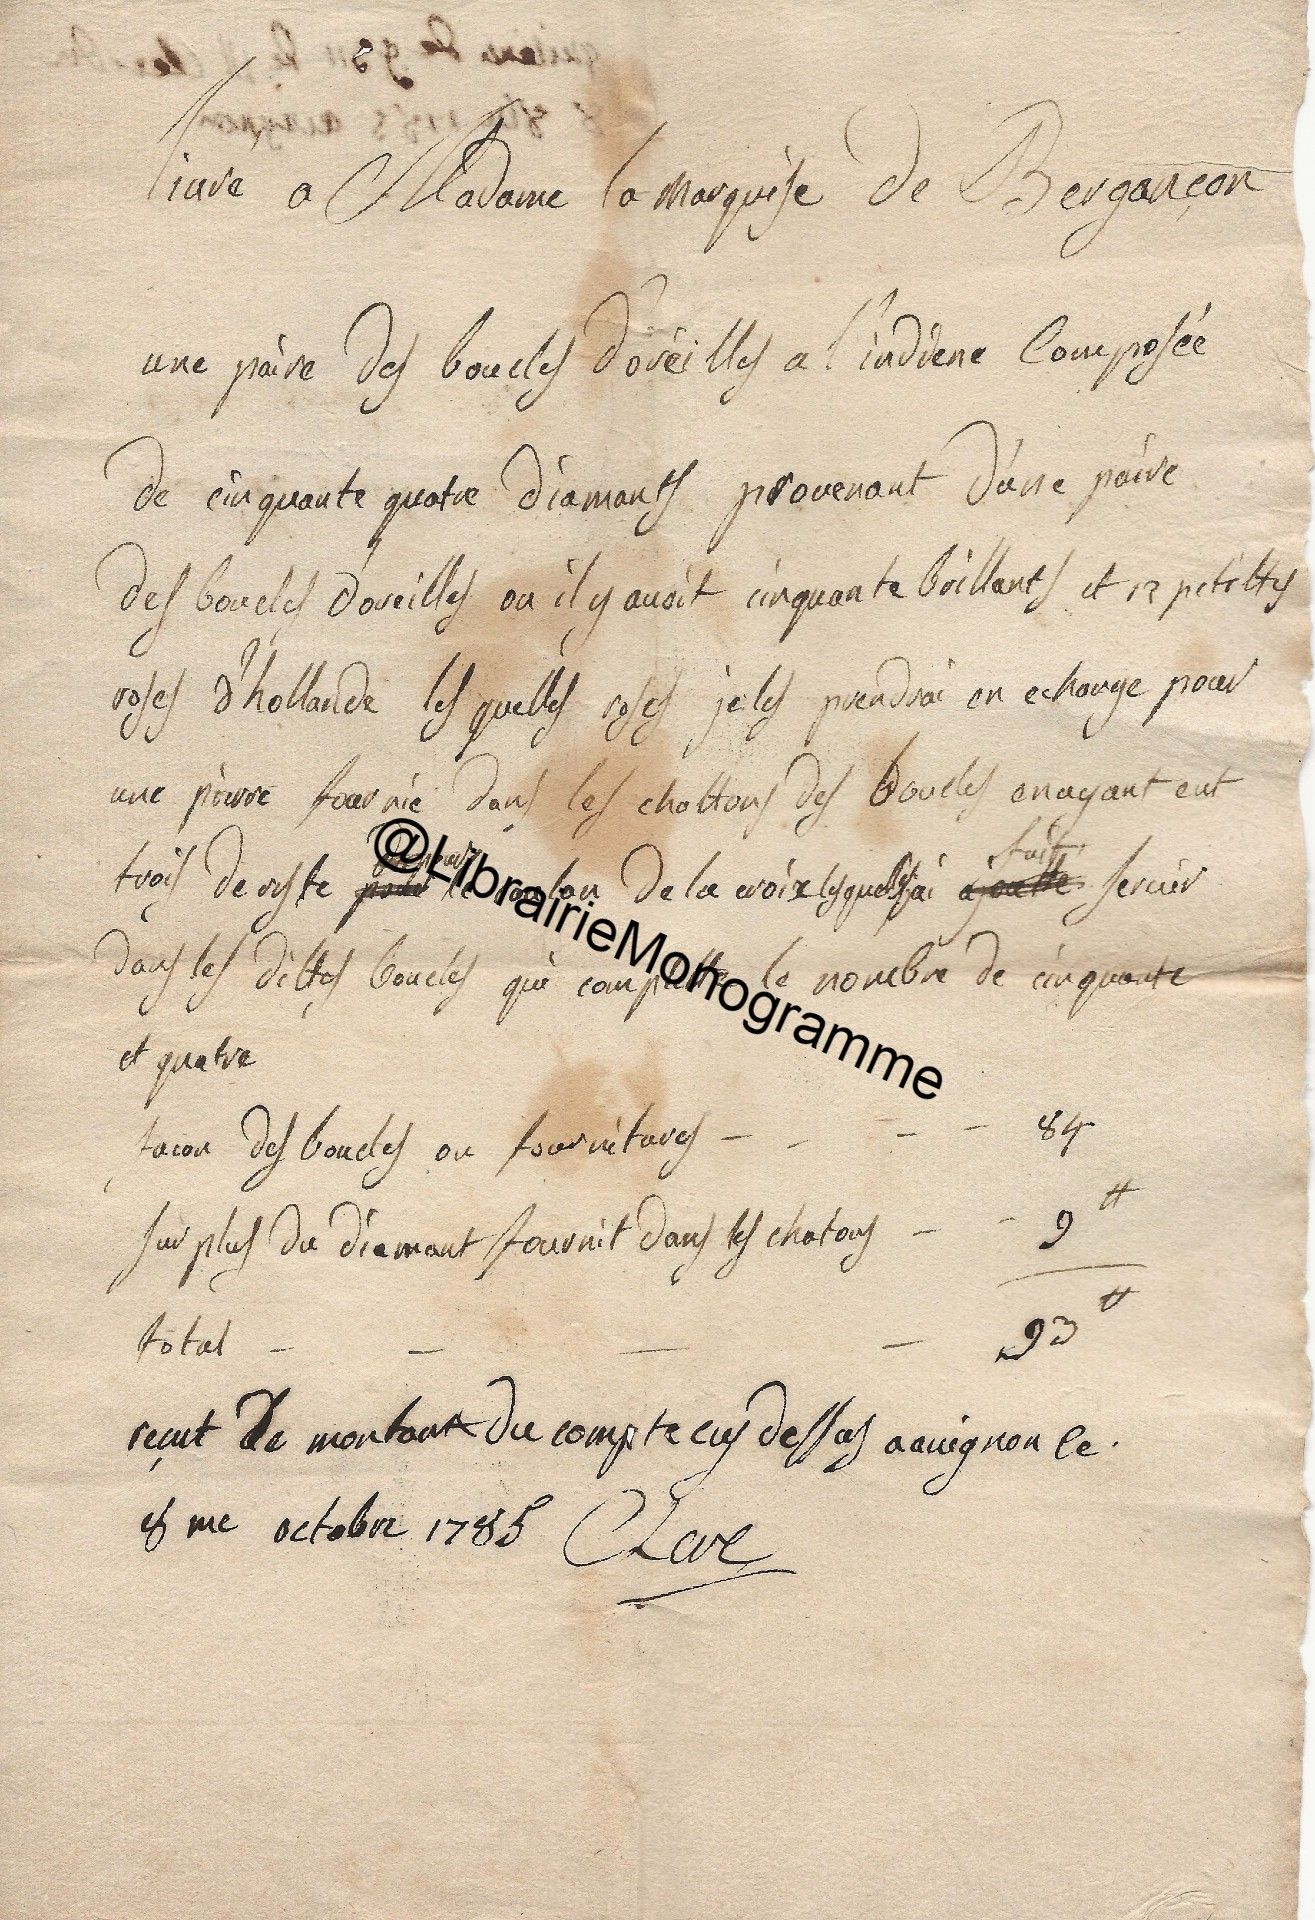 livré a Madame la Marquise de Bergançon
une paire des boucles d'oreilles a l'indiene Composée
de cinquante quatre diamants provenant d'une paire
des boucles d'oreilles ou il y avoit cinquante brillants et 12 petittes
roses d'hollande les quelles roses je les prendrai en echange pour
une pierre fournie dans les chattons des boucles en ayant eut
fait
trois de reste de la croix lesquelles j'ai servir
dans les dittes boucles qui complette le nombre de cinquante
et quatre
façon des boucles ou fournitures - - - - 84
surplus du diamant fournit dans les chatons - - 9 ₶
total - - - - 93 ₶
reçut le montant du compte cy dessus a avignon le
8 me octobre 1785
@LibrairieMonogramme